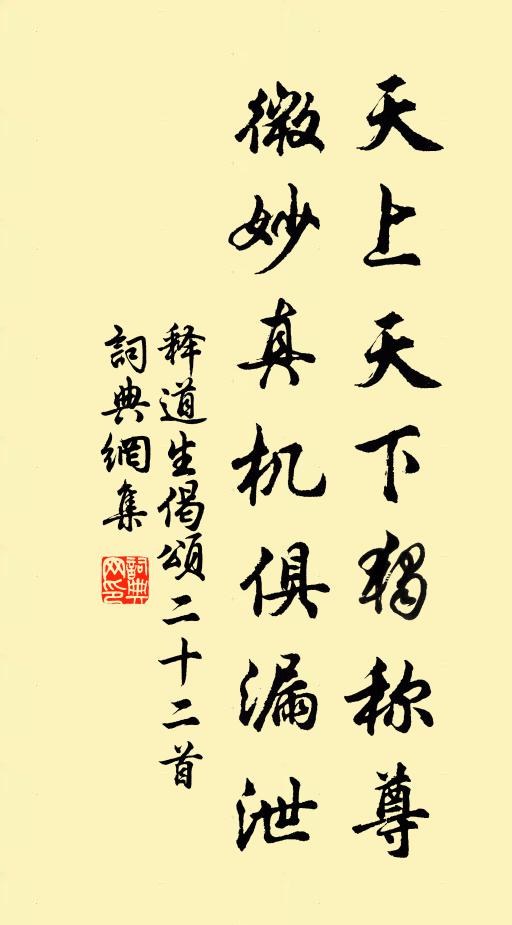 天上天下独称尊
微妙真机俱漏泄
释道生偈颂二十二首
詞典網集
詞典网印